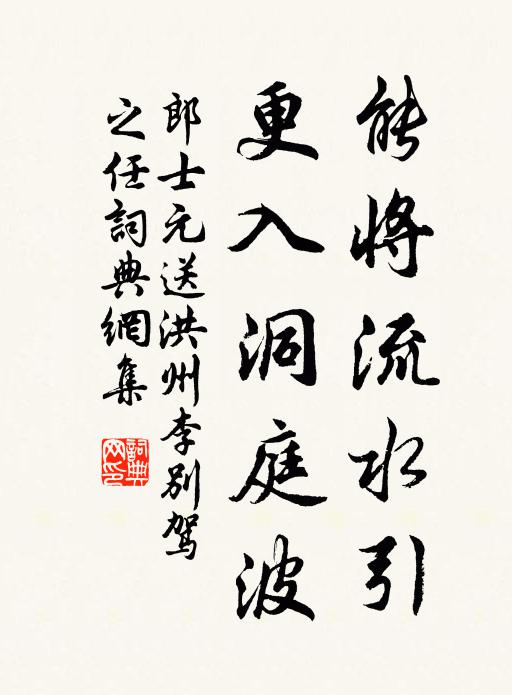 能将流水引
更入洞庭波
郎士元送洪州李别駕
之任詞典網集
詞典網印